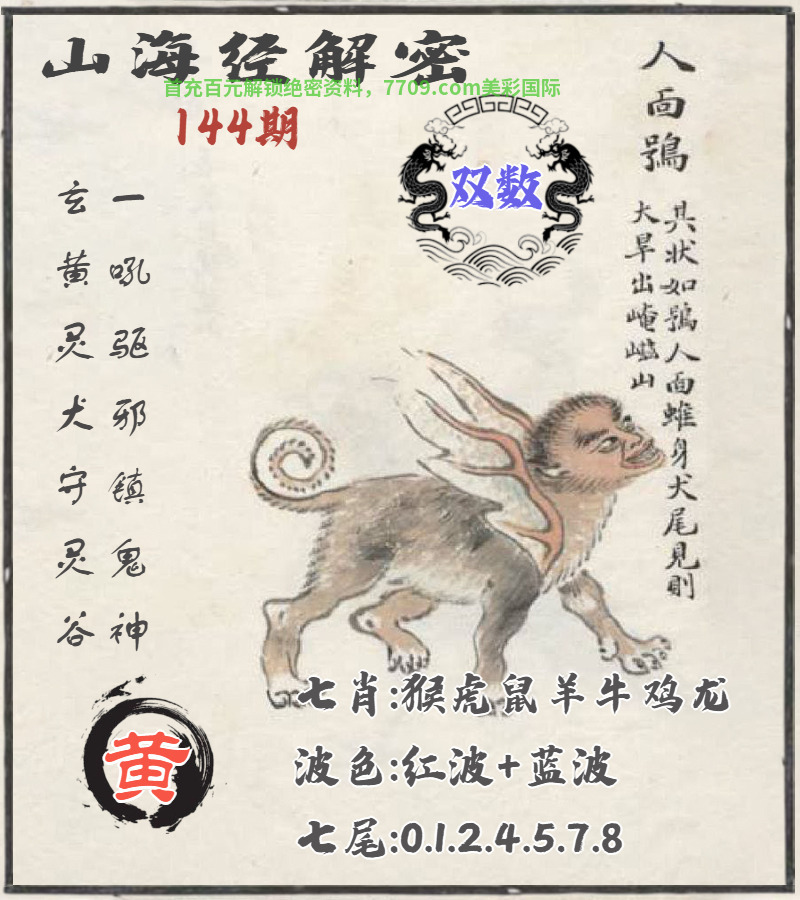 山海经解密
首充百元解锁绝密资料，7709.com美彩国际
144期
双数
人面鴞
其状如鴞人面蜼身犬尾見則
大旱出崦嵫山
一吼驱邪镇鬼神
玄黄灵犬守灵谷
黄
七肖:猴虎鼠羊牛鸡龙
波色:红波+蓝波
七尾:0.1.2.4.5.7.8